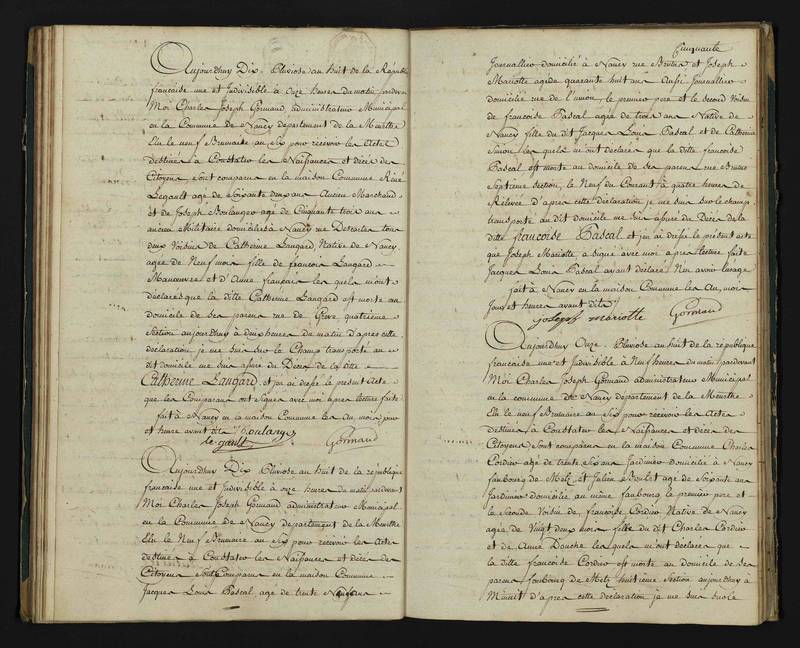 Aujourdhuy Dix Pluviose au huit de la Républ
francoise une et Indivisible à Onze heures du matin pardevan
Moi Charles Joseph Gormand, administrateur Municipal
en la Commune de Nancy departement de la Meurthe
Elu le neuf Brumaire au Six pour recevoir les Actes
destinés à Constater les Naissances et décès des
Citoyens, sont comparus en la maison Commune René
Legault agé de Soixante deux ans Ancien Marchand
et de Joseph Boulanger agé de Cinquante trois ans
ancien Militaire domiciliés à Nancy rue Descartes tous
deux Voisins de Catherine Langard Native de Nancy
agée de Neuf mois fille de francois Langard
Manœuvre et d'Anne francais les quels mont
déclarés que la ditte Catherine Langard est morte au
domicile de ses parens rue de Greve quatrieme
Section aujourdhuy à deux heures du matin d'après cette
declaration, je me suis sur le Champ transporté au
dit domicile me suis assuré du Décès de la ditte
Catherine Langard, et j'ai ai dressé le présent Acte
que les Comparans ont signés avec moi après lecture faite
fait à Nancy en la maison Commune les An, mois jour
et heure avant dits Boulanger
le gault Gormand
Aujourdhuy Dix Pluviose au huit de la republique
francoise une et Indivisible à onze heures du matin pardevant
Moi Charles Joseph Gormand administrateur Municipal
en la Commune de Nancy departement de la Meurthe
Elu le Neuf Brumaire au Six pour recevoir les Actes
destinés à Constater les Naissances et décès des
Citoyens Sont Comparus en la maison Commune
Jacques Louis Pascal, agé de trente Neuf ans
Cinquante
Journallier domicilié à Nancy rue et Joseph
Mariotte agé de quarante huit ans Aussi Journallier
domicilié rue de l'union, le premier pere et le Second Voisin
de francoise Pascal agée de trois ans Native de
Nancy fille du dit Jacques Louis Pascal et de Catherine
Simon les quels m'ont déclarés que la ditte francoise
Pascal est morte au domicile de ses parens rue
Septieme section, le Neuf du Courant à quatre heures de
Relevée D'après cette declaration je me suis sur le champ
transporté au dit domicile me suis assuré du Décès de la
ditte francoise Pascal et j'en ai dressé le présent acte
que Joseph Mariotte, a signé avec moi après lecture faite
Jacques Louis Pascal ayant declaré N'en avoir l'usage
fait à Nancy en la maison Commune les An, mois
Jour et heures avant dits
joseph mariotte Gormand
Aujourdhuy Onze Pluviose au huit de la république
francaise une et Indivisible à Neuf heures du matin pardevant
Moi Charles Joseph Gormand administrateur Municipal
en la commune de Nancy departement de la Meurthe
Elu le Neuf Brumaire au Six pour recevoir les Actes
destinés à Constater les Naissances et décès des
Citoyens, Sont comparus en la maison Commune Charles
Cordier agé de trente Six ans Jardinier Domicilié à Nancy
faubourg de Metz et Julien agé de Soixante ans
Jardinier domicilié au même faubourg le premier pere et
le Second Voisin de francoise Cordier Native de Nancy
agée de Vingt deux mois fille du dit Charles Cordier
et de Anne Douche les quels m'ont déclarés que
la ditte francoise Cordier est morte au domicile de ses
parens faubourg de Metz huitieme Section aujourdhuy à
Minuit d'après cette déclaration je me suis sur le